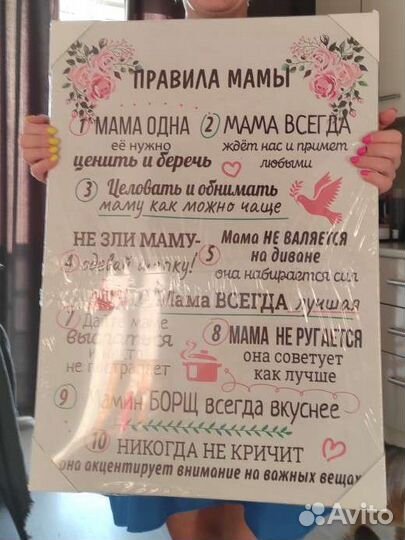 ПРАВИЛА МАМЫ
1 МАМА ОДНА
её нужно
ценить и беречь
2 МАМА ВСЕГДА
ждёт нас и примет
любыми
3 Целовать и обнимать
маму как можно чаще
НЕ ЗЛИ МАМУ-
4 одевай шапку!
5 Мама НЕ ВАЛЯЕТСЯ
на диване
она набирается сил
Мама ВСЕГДА лучшая
7 Дай маме
выспаться
и никто
не пострадает
8 МАМА НЕ РУГАЕТСЯ
она советует
как лучше
9 Мамин БОРЩ всегда вкуснее
10 НИКОГДА НЕ КРИЧИТ
она акцентирует внимание на важных вещах
Avito